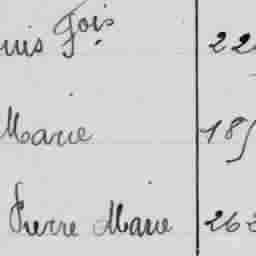 uis Fois 22
Marie 185
Pierre Marie 263